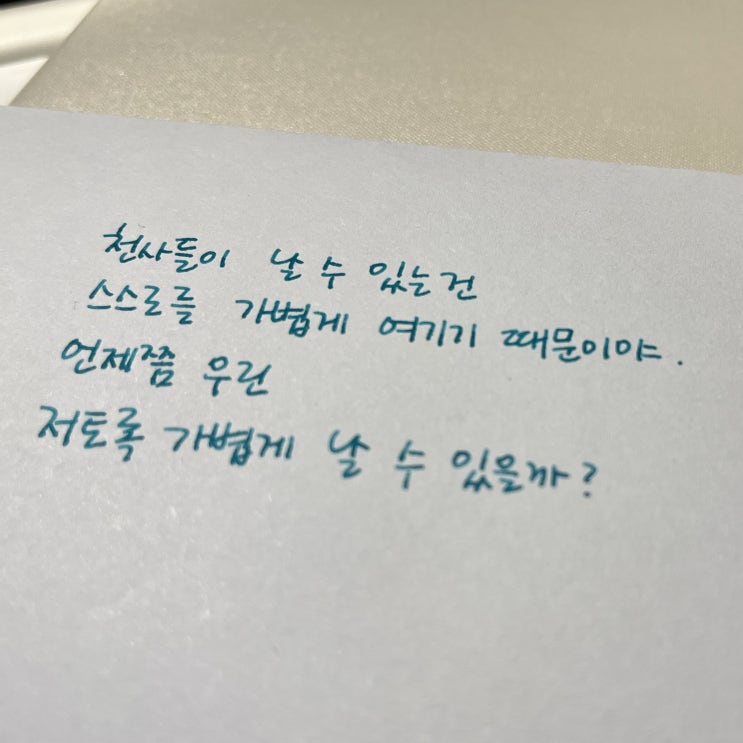 천사들이 날 수 있는건
스스로를 가볍게 여기기 때문이야.
언제쯤 우린
저토록 가볍게 날 수 있을까?